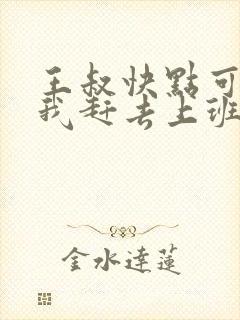 王叔快點可
我赶去上班
金水達蓮